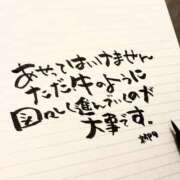 あせってはいけません
ただ、牛のように
図々しく進んでいくのが
大事です。